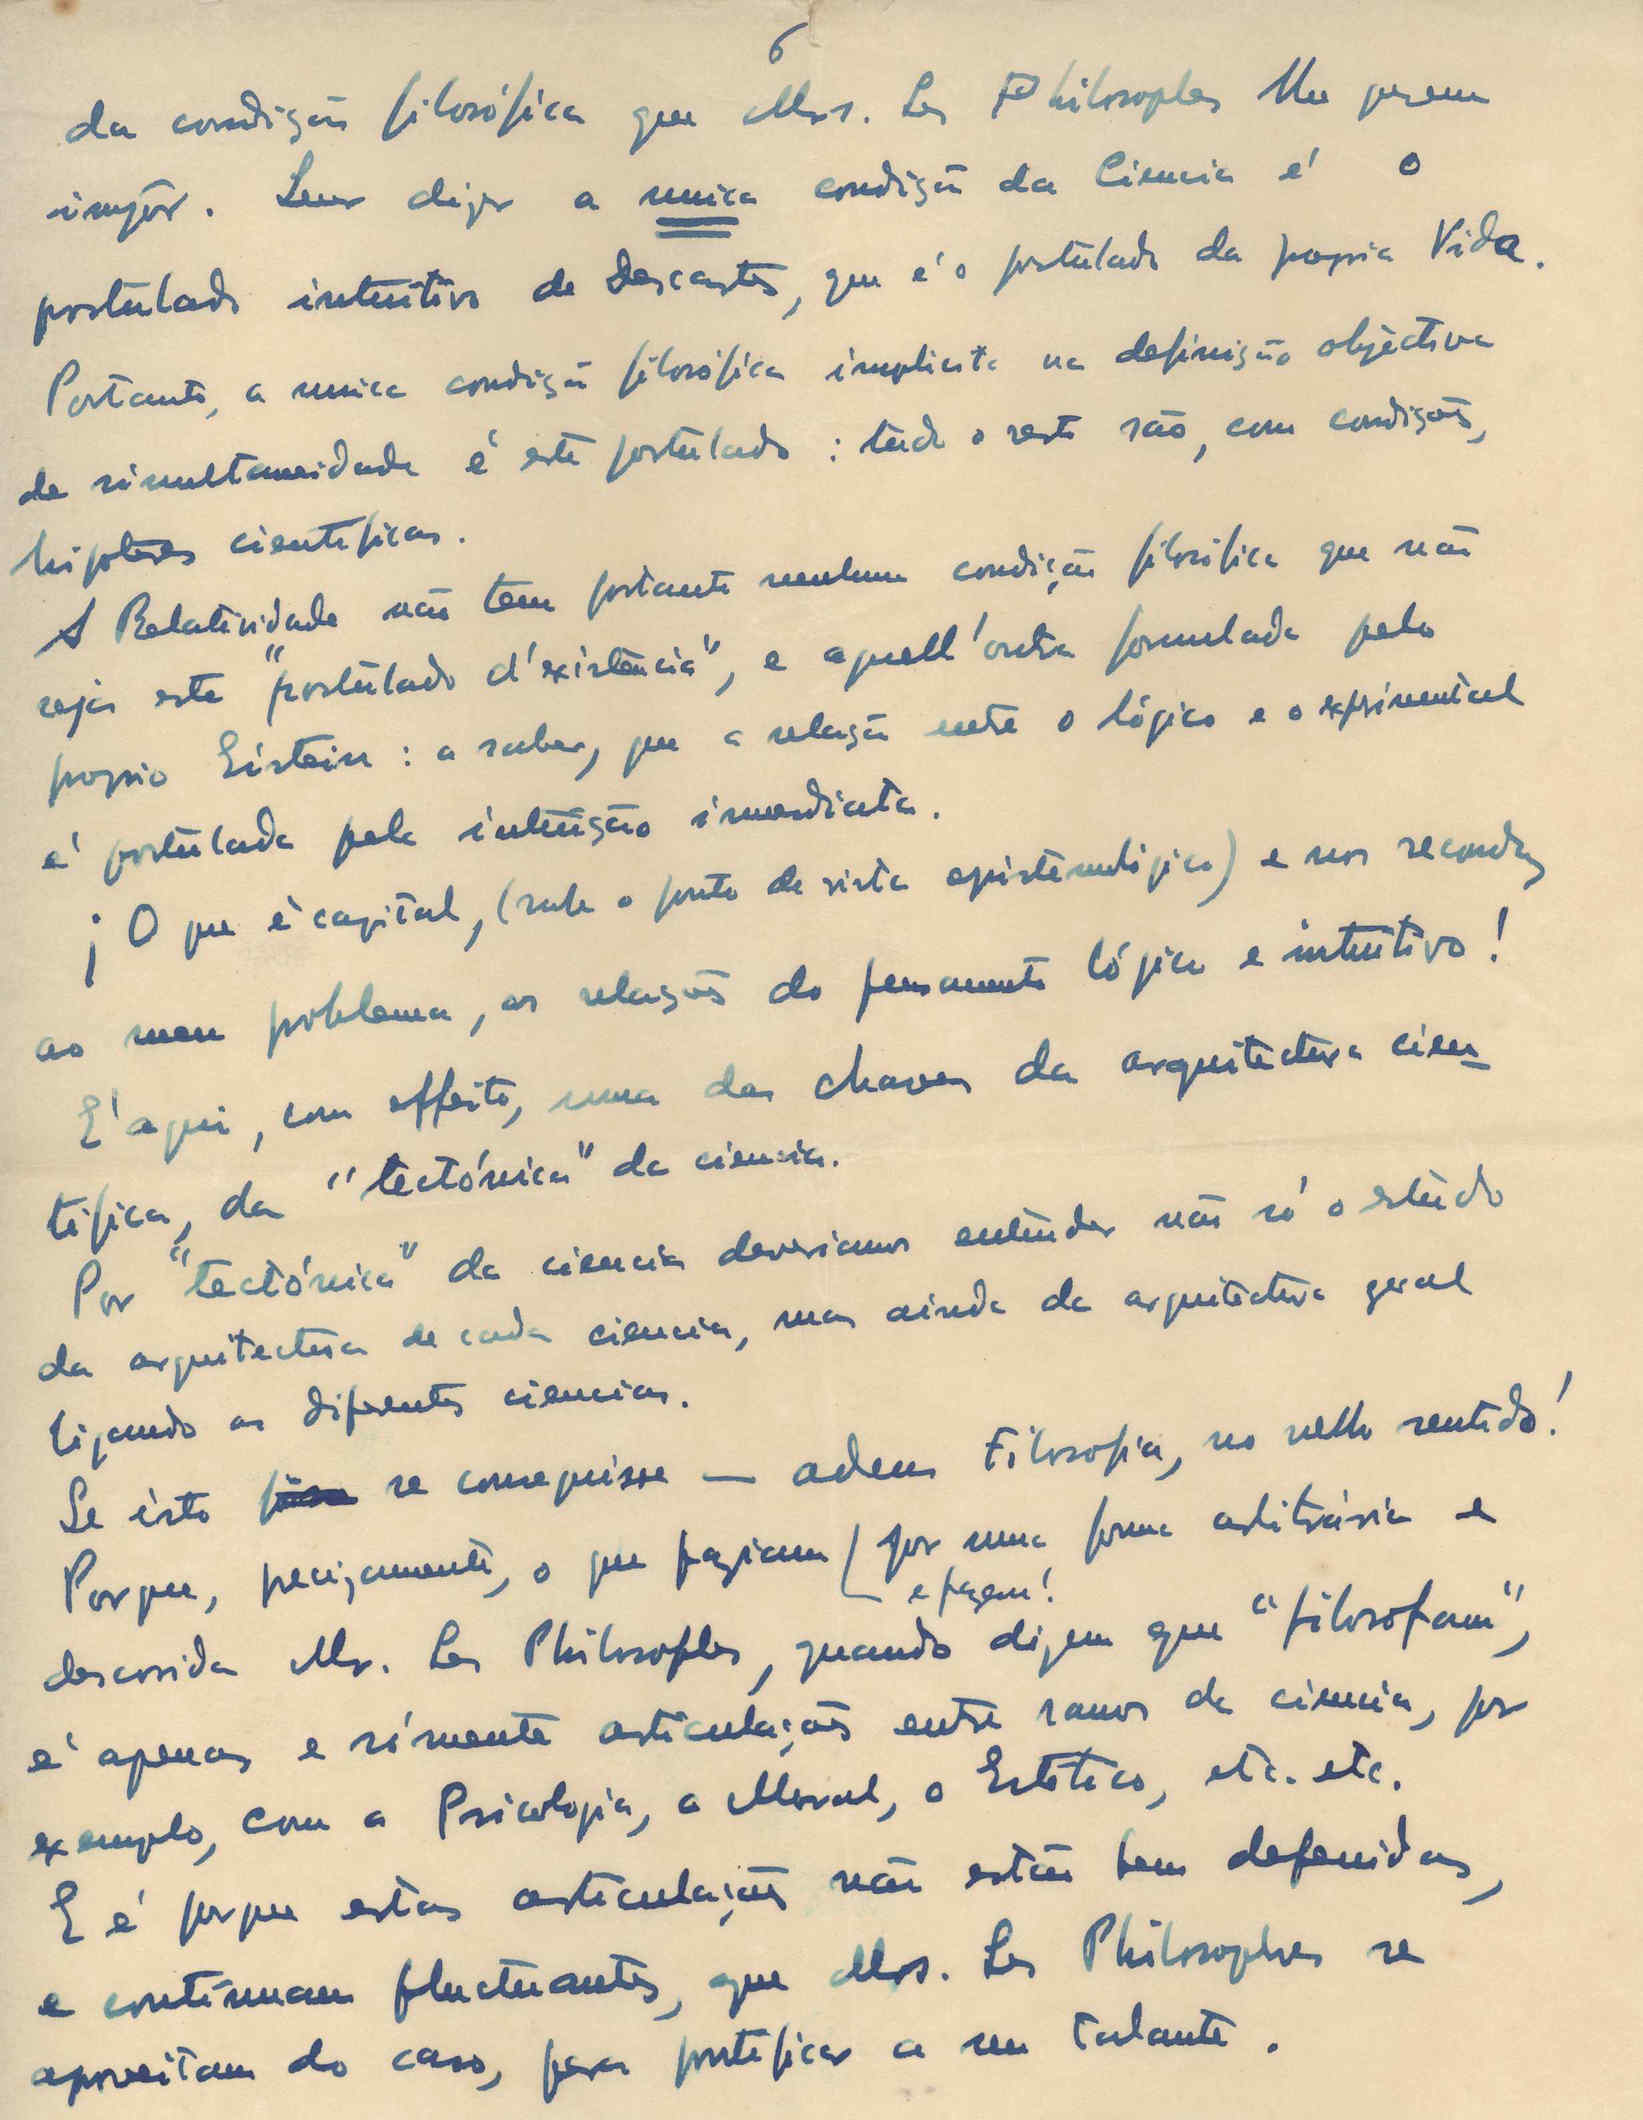 6
da condição filosófica que Mrs. Les Philosophes lhe querem
impôr. Quer dizer a unica condição da Ciencia é o
postulado intuitivo de Descartes, que é o postulado da propria Vida.
Portanto, a unica condição filosófica implicita na definição objectiva
de simultaneidade é este postulado: tudo o resto são, com condições,
hipoteses cientificas.
A Relatividade não tem portanto nenhuma condição filosófica que não
seja este "postulado d'existência", e aquell'outra formulada pelo
proprio Einstein: a saber, que a relação entre o lógico e o experimental
é postulada pela intuição imediata.
¡O que é capital, (sob o ponto de vista epistemológico) e nos reconduz
ao meu problema, as relações do pensamento lógico e intuitivo!
E' aqui, com effeito, uma das chaves da arquitectura cien-
tifica, da "tectónica" da ciencia.
Por "tectónica" da ciencia deveriamos entender não só o estudo
da arquitectura de cada ciencia, mas ainda da arquitectura geral
ligando as diferentes ciencias.
Se isto se conseguisse — adeus Filosofia, no velho sentido!
Porque, precizamente, o que faziam por uma forma arbitrária e
e fazem!
descosida Mr. Les Philosophes, quando dizem que "filosofam",
é apenas e sómente articulações entre ramos da ciencia, por
exemplo, com a Psicologia, a Moral, o Estético, etc. etc.
E é porque estas articulações não estão bem defenidas,
e continuam fluctuantes, que Mrs. Les Philosophes se
aproveitam do caso, para pontificar a seu talante.